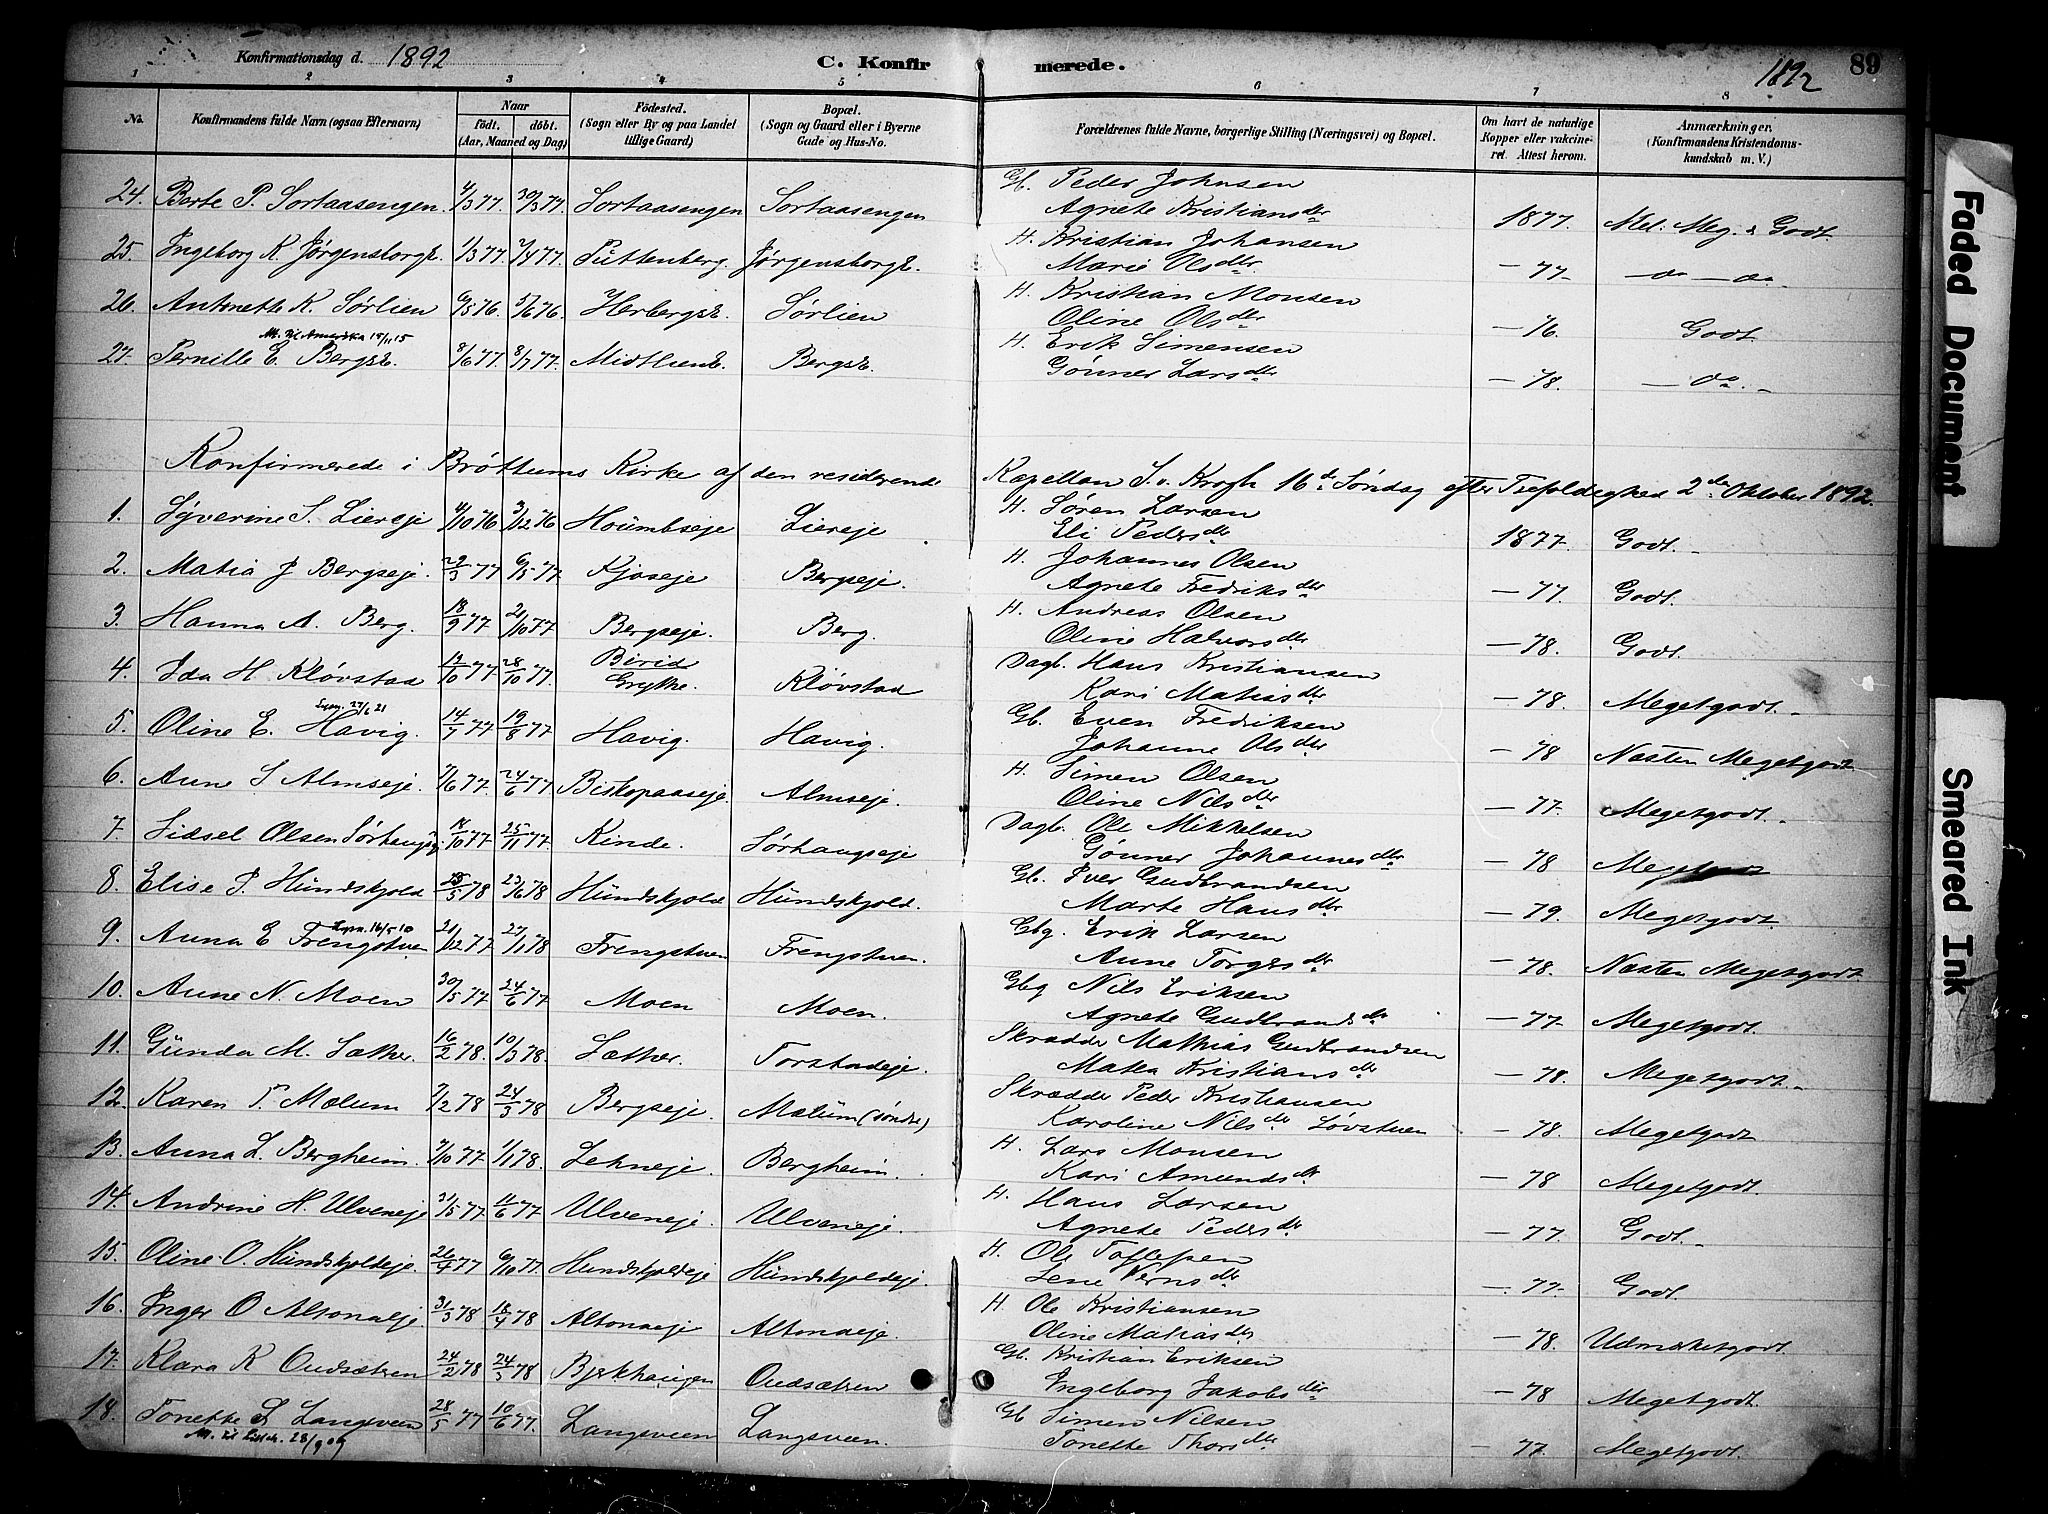 Konfirmationsdag d. 1892
C. Konfirmerede.
1892
89
1 2 3 4 5 6 7 8
No.
Konfirmandens fulde Navn (ogsaa Efternavn)
Naar
födt. döbt.
(Aar, Maaned og Dag)
Födested.
(Sogn eller By og paa Landet
tillige Gaard)
Bopæl.
(Sogn og Gaard eller i Byerne
Gade og Hus-No.
Forældrenes fulde Navne, borgerlige Stilling (Næringsvei) og Bopæl.
Om havt de naturlige
Kopper eller vakcine-
ret. Attest herom.
Anmærkninger.
(Konfirmandens Kristendoms-
kundskab m. V.)
24. Berte P. Sortaasengen 4/3 77. 30/3 77. Sortaasengen Sortaasengen Gb. Peder Johnsen
Agnete Kristiansdtr 1877. Mel. Meg. & Godt.
25. Ingeborg K Jørgensborgb. 1/3 77. 2/4 77. Püttenberg. Jørgensborgb. H. Kristian Johansen
Marie Olsdtr — 77 — do — do.
26. Antonette K. Sørlien 6/5 76. 5/6 76. Herbergsb. Sørlien H. Kristian Monsen
Oline Olsdtr — 76. Godt.
M. til Amerika 15/11 15
27. Pernille E. Bergsb. 8/6 77. 8/7 77. Midtlienb. Bergsb. H. Erik Simensen
Gønner Larsdtr — 78. — do. —
Konfirmerede i Brøttums Kirke af den residerende Kapellan S. v. Krogh 16de Søndag efter Trefoldighed 2den Oktober 1892.
1. Syverine S. Liereje 4/10 76 3/12 76 Houmbseje Liereje H. Søren Larsen
Eli Pedersdtr 1877. Godt.
2. Matia J Bergseje. 29/3 77 6/5 77. Kjoseje Bergseje. H. Johannes Olsen
Agnete Fredriksdtr — 77. Godt.
3. Hanna A. Berg. 18/9 77. 21/10 77. Bergseje. Berg. H. Andreas Olsen
Oline Halvorsdtr — 78. Godt.
4. Ida H. Kløvstad 14/10 77. 28/10 77. Birid
Grytte. Kløvstad Dagb. Hans Kristiansen
Kari Matiasdtr — 78. Megetgodt.
27/6 21
5. Oline E. Havig. 14/7 77 19/8 77. Havig. Havig. Gb. Even Fredriksen
Johanne Olsdtr — 78 Næsten Megetgodt
6. Anne S. Almseje. 7/6 77. 24/6 77. Biskopaaseje Almseje. H. Simen Olsen
Oline Nilsdtr — 77. Megetgodt.
7. Sidsel Olsen Sørhaugsej. 14/10 77. 25/11 77. Kinde. Sørhaugseje Dagb. Ole Mikkelsen
Gønner Johannesdtr — 78 Megetgodt
8. Elise P. Hündskjold /5 78 23/6 78 Hündskjold Hündskjold. Gb. Iver Gudbrandsen
Marte Hansdtr — 79. Megetgodt.
16/5 10
9. Anna E Frengstuen 21/12 77. 27/1 78. Frengstuen Frengstuen. Gbg. Erik Larsen
Anne Torgersdtr — 78. Næsten Megetgodt.
10. Anne N. Moen 30/5 77. 24/6 77. Moen Moen. Gbg Nils Eriksen
Agnete Gudbrandsdtr — 77. Megetgodt.
11. Günda M. Sæther. 16/2 78. 10/3 78. Sæther. Torstadeje. Skrædder Mathias Gudbrandsen
Matea Kristiansdtr — 78. Megetgodt.
12. Karen P. Mælum 7/2 78 24/3 78 Bergseje. Mælum (søndre) Skrædder Peder Kristiansen
Karoline Nilsdtr Løvstuen — 78. Megetgodt
13. Anna L. Bergheim. 7/10 77. 1/1 78. Lehneje. Bergheim. H. Lars Monsen
Kari Amundsdtr — 78 Megetgodt.
14. Andrine H. Ulveneje 31/5 77. 11/6 77. Ulveneje. Ulveneje. H. Hans Larsen
Agnete Pedersdtr — 77. Godt.
15. Oline O. Hündskjoldeje. 26/4 77 6/10 77. Hundskjoldeje Hündskjoldeje. H. Ole Toflefsen
Lene dtr — 77. Godt.
16. Inger O Altonaeje. 31/3 78 18/4 78. Altonaeje Altonaeje. H Ole Kristiansen
Oline Matiasdtr — 78. Udmærketgodt.
17. Klara K Oudsætren 24/2 78 24/3 78 Bjerkhaugen Oudsætren Gb. Kristian Eriksen
Ingeborg Jakobsdtr — 78 Megetgodt.
18. Tonette S Langsveen 28/5 77 10/6 77. Langsveen Langsveen. Gb Simen Nilsen
M. til 28/9 09
Tonette Thorsdtr — 77. Megetgodt.
Faded Document
Smeared Ink